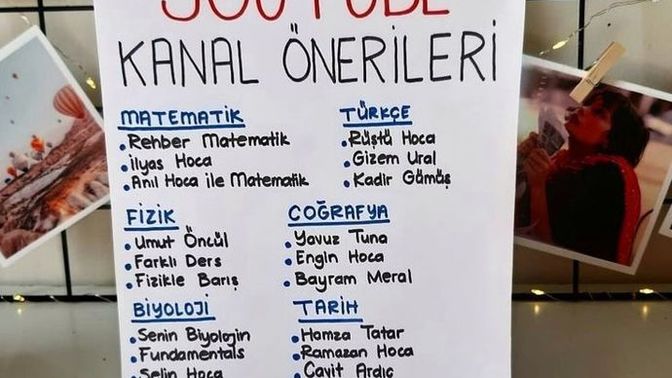 YOUTUBE
KANAL ÖNERİLERİ
MATEMATİK
• Rehber Matematik
• İlyas Hoca
• Anıl Hoca ile Matematik
TÜRKÇE
• Rüştü Hoca
• Gizem Ural
• Kadir Gümüş
FİZİK
• Umut Öncül
• Farklı Ders
• Fizikle Barış
COĞRAFYA
• Yavuz Tuna
• Engin Hoca
• Bayram Meral
BİYOLOJİ
• Senin Biyolojin
• Fundamentals
• Selin Hoca
TARİH
• Hamza Tatar
• Ramazan Hoca
• Cavit Ardıç